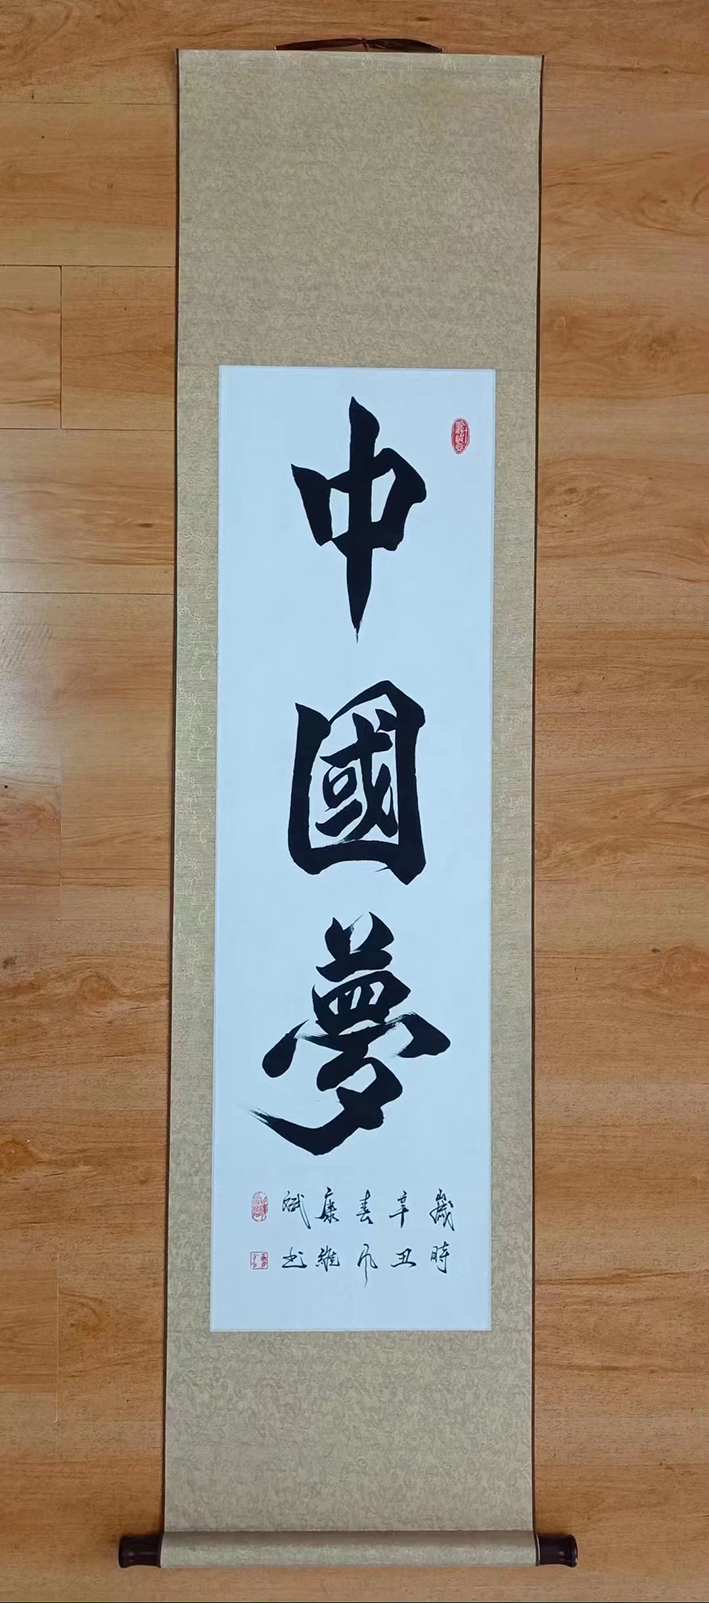 中國夢
歲時
辛丑
春月
康維
斌书